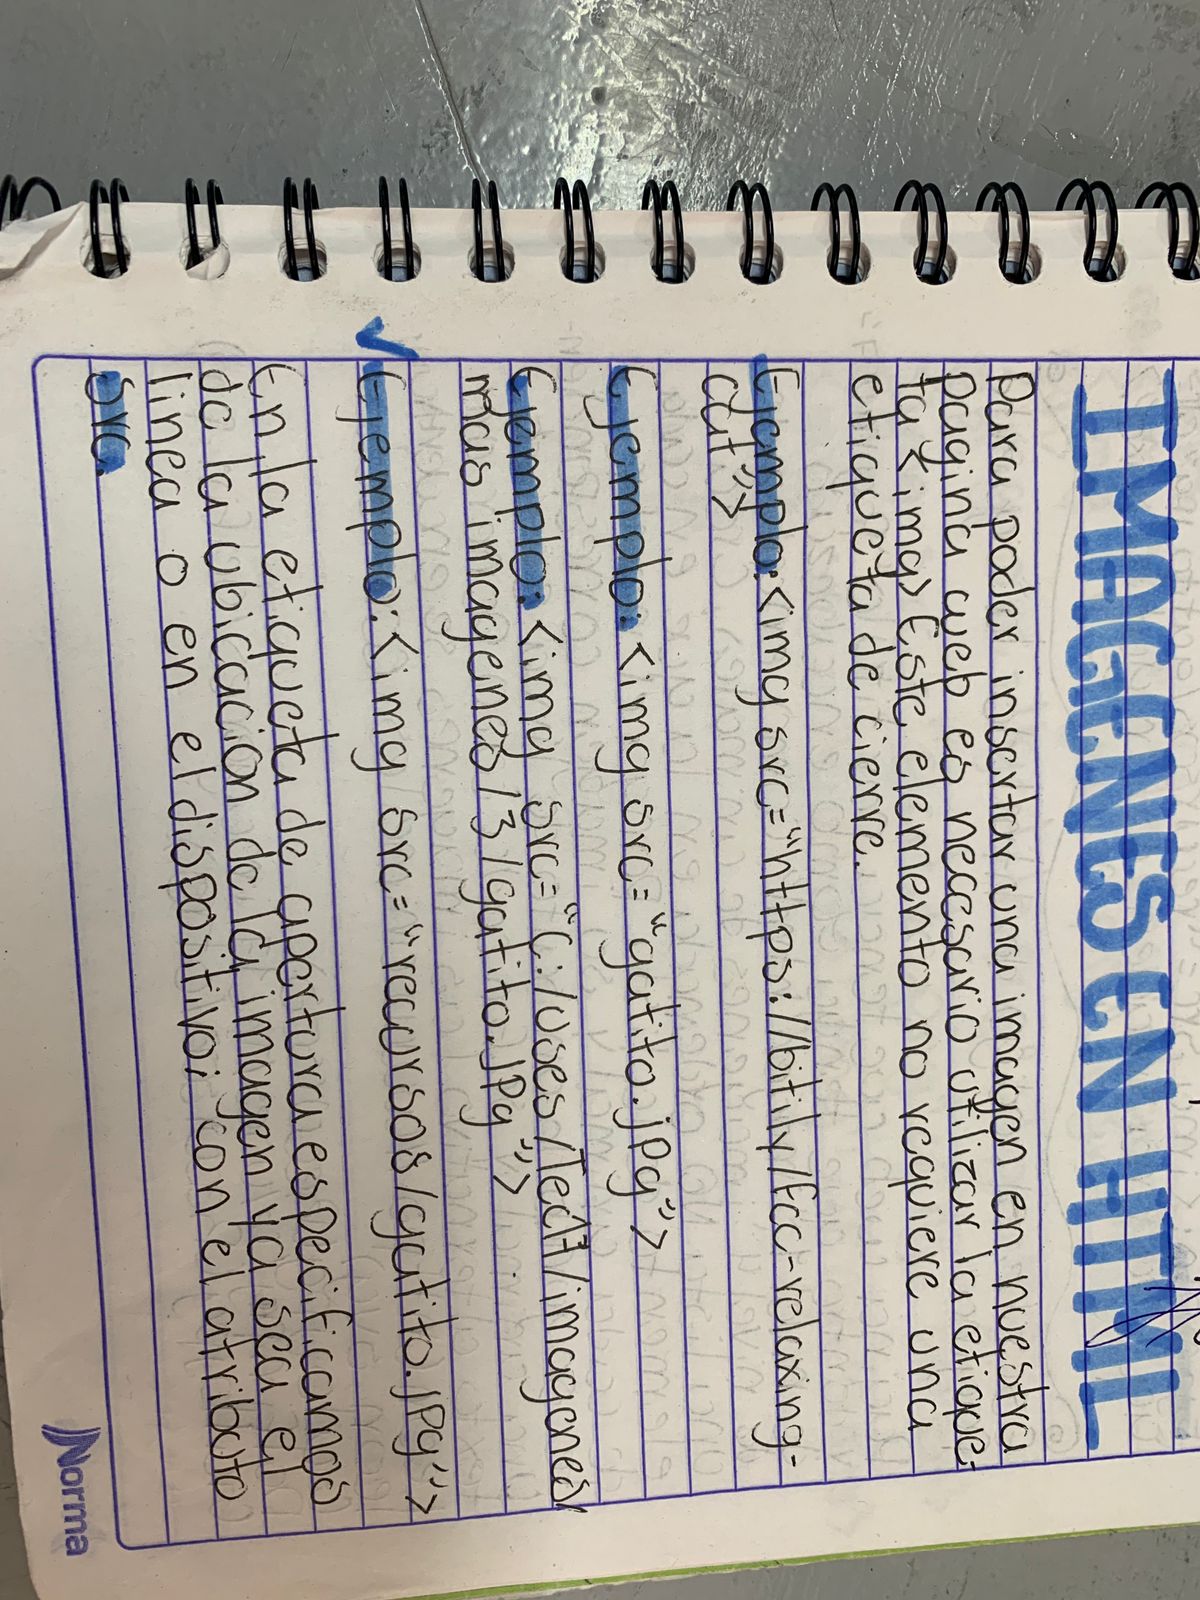 IMAGENES EN HTML
Para poder insertar una imagen en nuestra
pagina web es necesario utilizar la etique-
ta <img> Este elemento no requiere una
etiqueta de cierre.
Ejemplo: <img src="https://bitily/fcc-relaxing-
cat">
Ejemplo: <img src="gatito.jpg">
Ejemplo: <img src="C:/Uses/Tec17/imagenes/
mas imagenes/3/gatito.jpg">
✓ Ejemplo: <img src="recursos/gatito.jpg">
En la etiqueta de apertura especificamos
de la ubicación de la imagen ya sea el
linea o en el dispositivo; con el atributo
src.
Norma